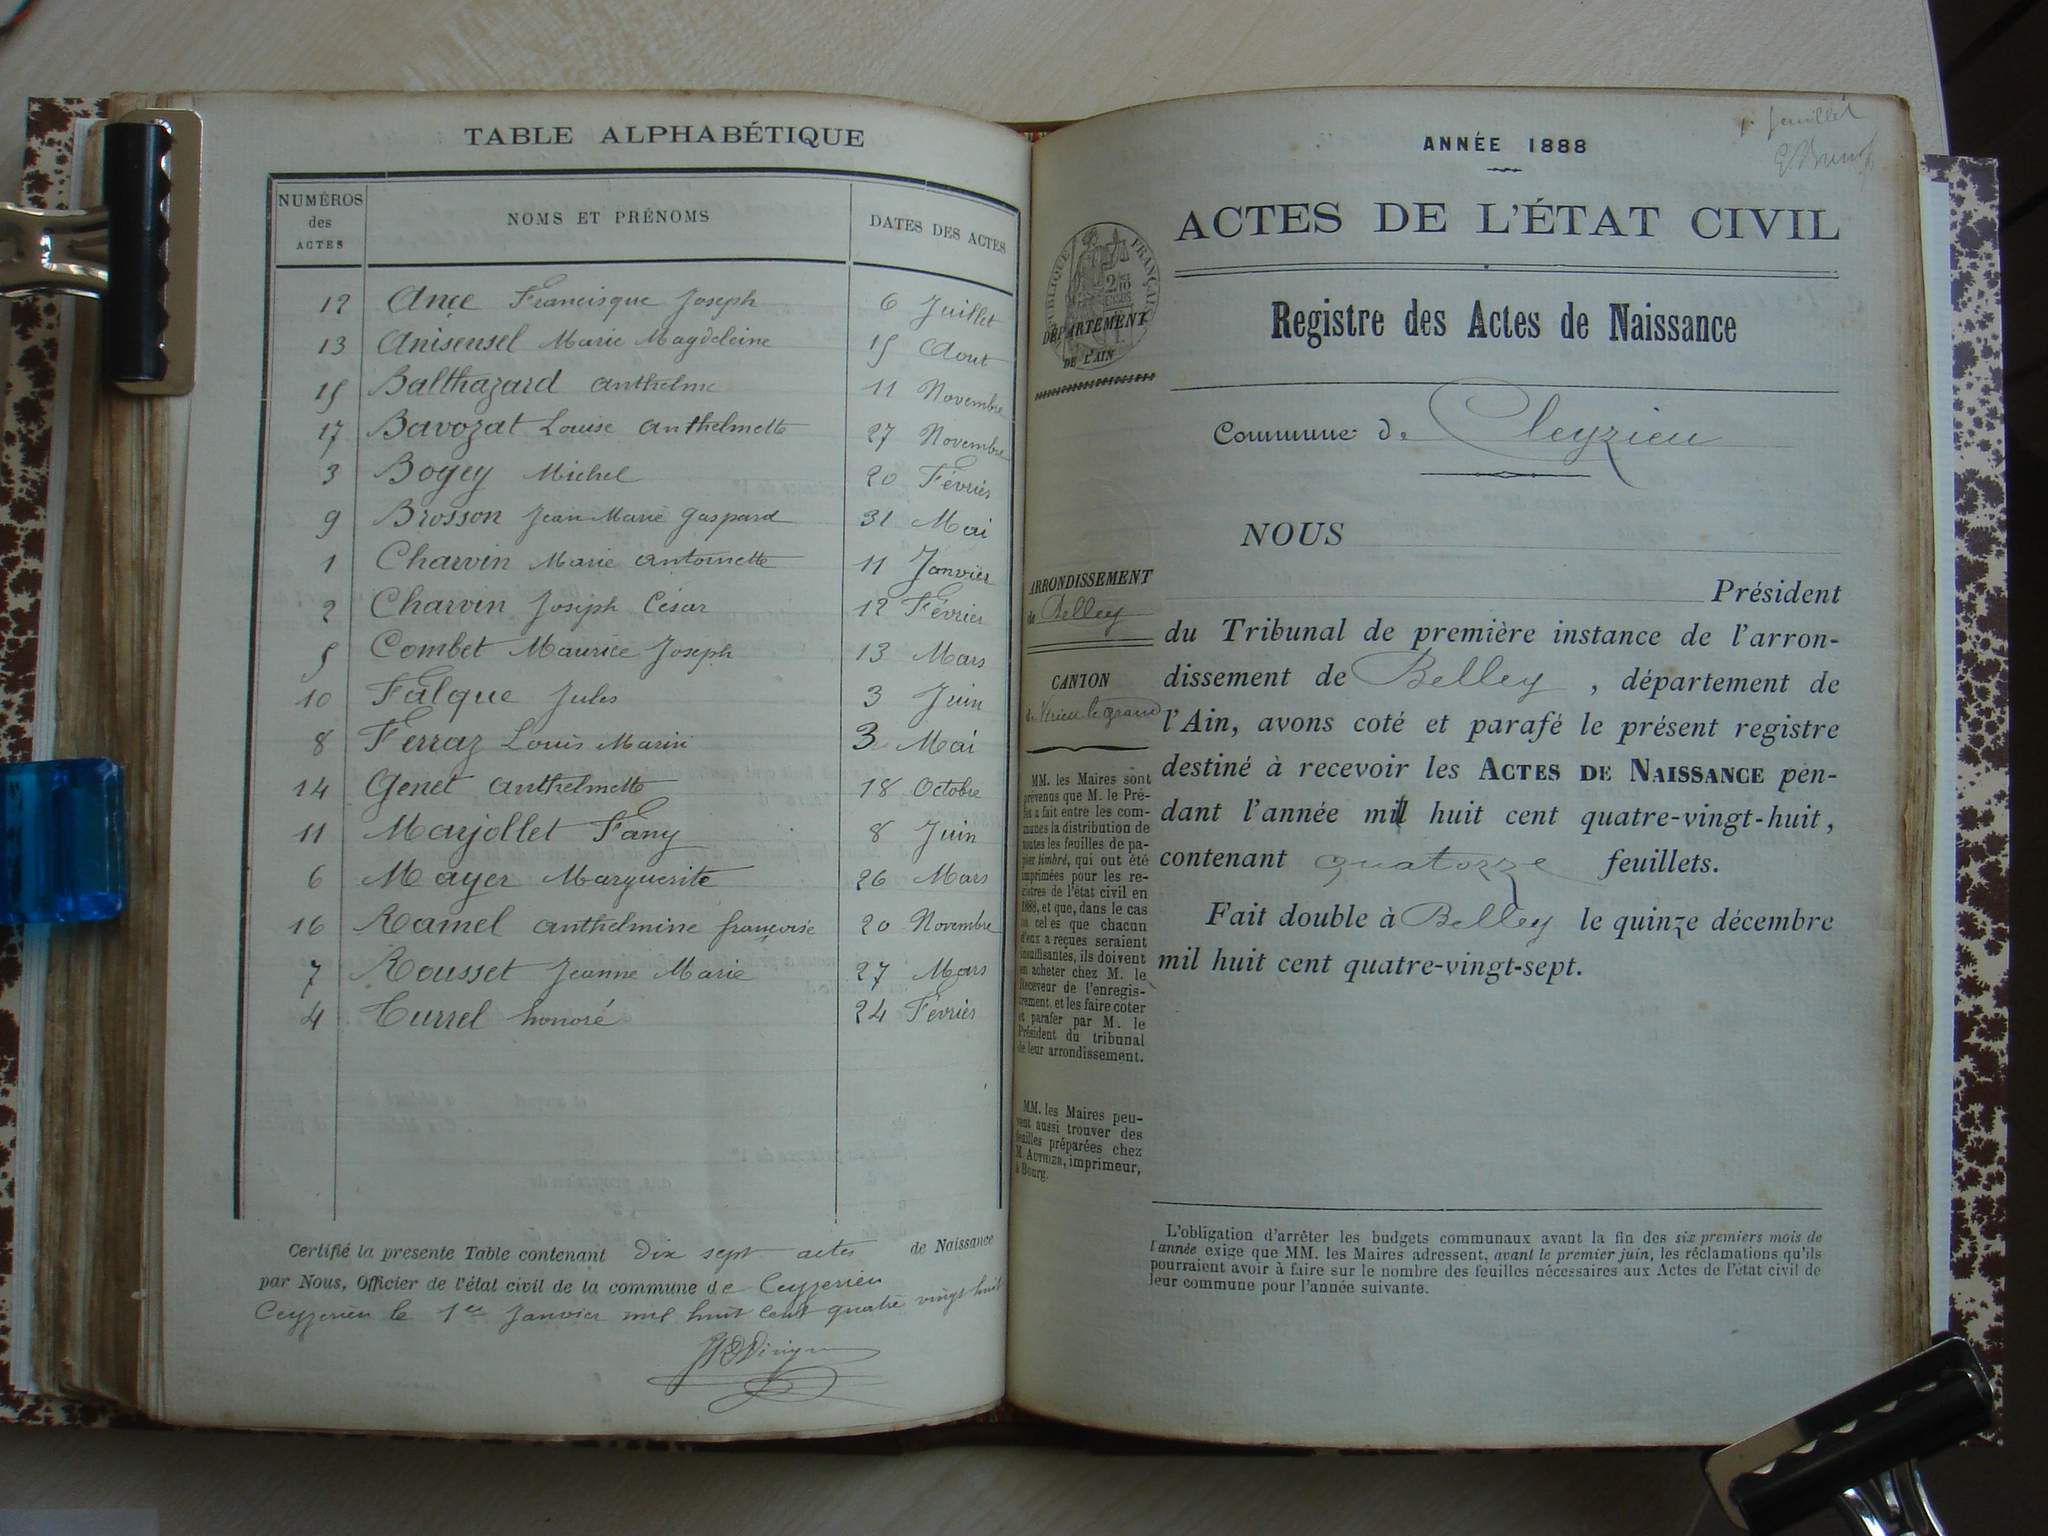 TABLE ALPHABÉTIQUE
NUMÉROS des ACTES NOMS ET PRÉNOMS DATES DES ACTES
12 Ance Francisque Joseph 6 Juillet
13 Anisensel Marie Magdeleine 15 Aout
15 Balthazard Anthelme 11 Novembre
17 Bavozat Louise Anthelmette 27 Novembre
3 Bogey Michel 20 Février
9 Brosson Jean Marie Gaspard 31 Mai
1 Charvin Marie Antoinette 11 Janvier
2 Charvin Joseph César 12 Février
5 Combet Maurice Joseph 13 Mars
10 Falque Jules 3 Juin
8 Ferraz Louis Marin 3 Mai
14 Genet Anthelmette 18 Octobre
11 Marjollet Fany 8 Juin
6 Mayer Marguerite 26 Mars
16 Ramel Anthelmine françoise 20 Novembre
7 Rousset Jeanne Marie 27 Mars
4 Turrel honoré 24 Février
Certifié la presente Table contenant dix sept actes de Naissance
par Nous, Officier de l'état civil de la commune de Ceyzerieu
Ceyzerieu le 1er Janvier mil huit cent quatre vingt huit
1r feuillet
ANNÉE 1888
ACTES DE L'ÉTAT CIVIL
RÉPUBLIQUE FRANÇAISE
DÉPARTEMENT
DE L'AIN
Registre des Actes de Naissance
Commune de Cleyzieu
NOUS
Président
du Tribunal de première instance de l'arron-
dissement de Belley, département de
l'Ain, avons coté et parafé le présent registre
destiné à recevoir les ACTES DE NAISSANCE pen-
dant l'année mil huit cent quatre-vingt-huit,
contenant quatorze feuillets.
Fait double à Belley le quinze décembre
mil huit cent quatre-vingt-sept.
ARRONDISSEMENT
de Belley
CANTON
de Virieu le grand
MM. les Maires sont
prévenus que M. le Pré-
fet a fait entre les com-
munes la distribution de
toutes les feuilles de pa-
pier timbré, qui ont été
imprimées pour les re-
gistres de l'état civil en
1888, et que, dans le cas
où celles que chacun
d'eux a reçues seraient
insuffisantes, ils doivent
en acheter chez M. le
Receveur de l'enregis-
trement, et les faire coter
et parafer par M. le
Président du tribunal
de leur arrondissement.
MM. les Maires peu-
vent aussi trouver des
feuilles préparées chez
M. AUTHIER, imprimeur,
à Bourg.
L'obligation d'arrêter les budgets communaux avant la fin des six premiers mois de
l'année exige que MM. les Maires adressent, avant le premier juin, les réclamations qu'ils
pourraient avoir à faire sur le nombre des feuilles nécessaires aux Actes de l'état civil de
leur commune pour l'année suivante.